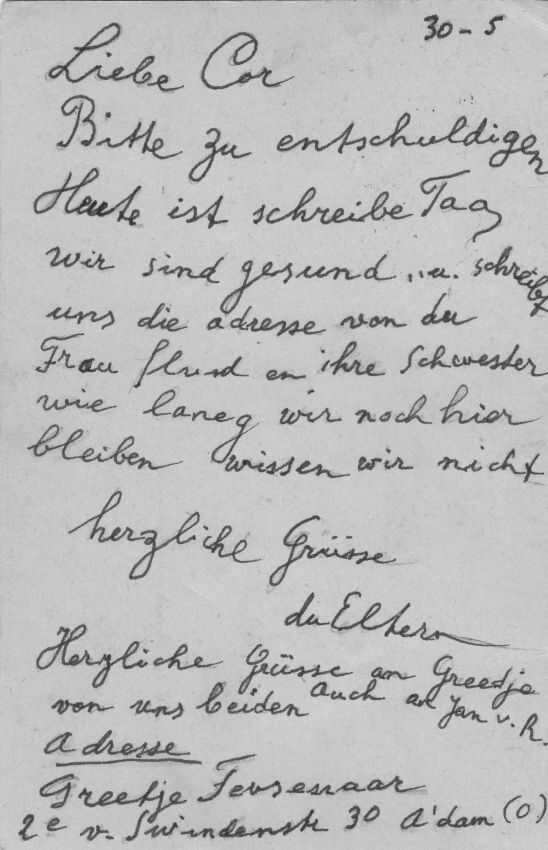 30-5
Liebe Cor
Bitte zu entschuldigen
Heute ist schreibe Tag
wir sind gesund „u. schreibt
uns die adresse von du
Frau en ihre Schwester
wie laneg wir noch hier
bleiben wissen wir nicht
herzliche Grüsse
du Eltern
Herzliche Grüsse an Greetje
von uns beiden auch an Jan v. R.
Adresse
Greetje
2e v. Swindenstr 30 A'dam (O)